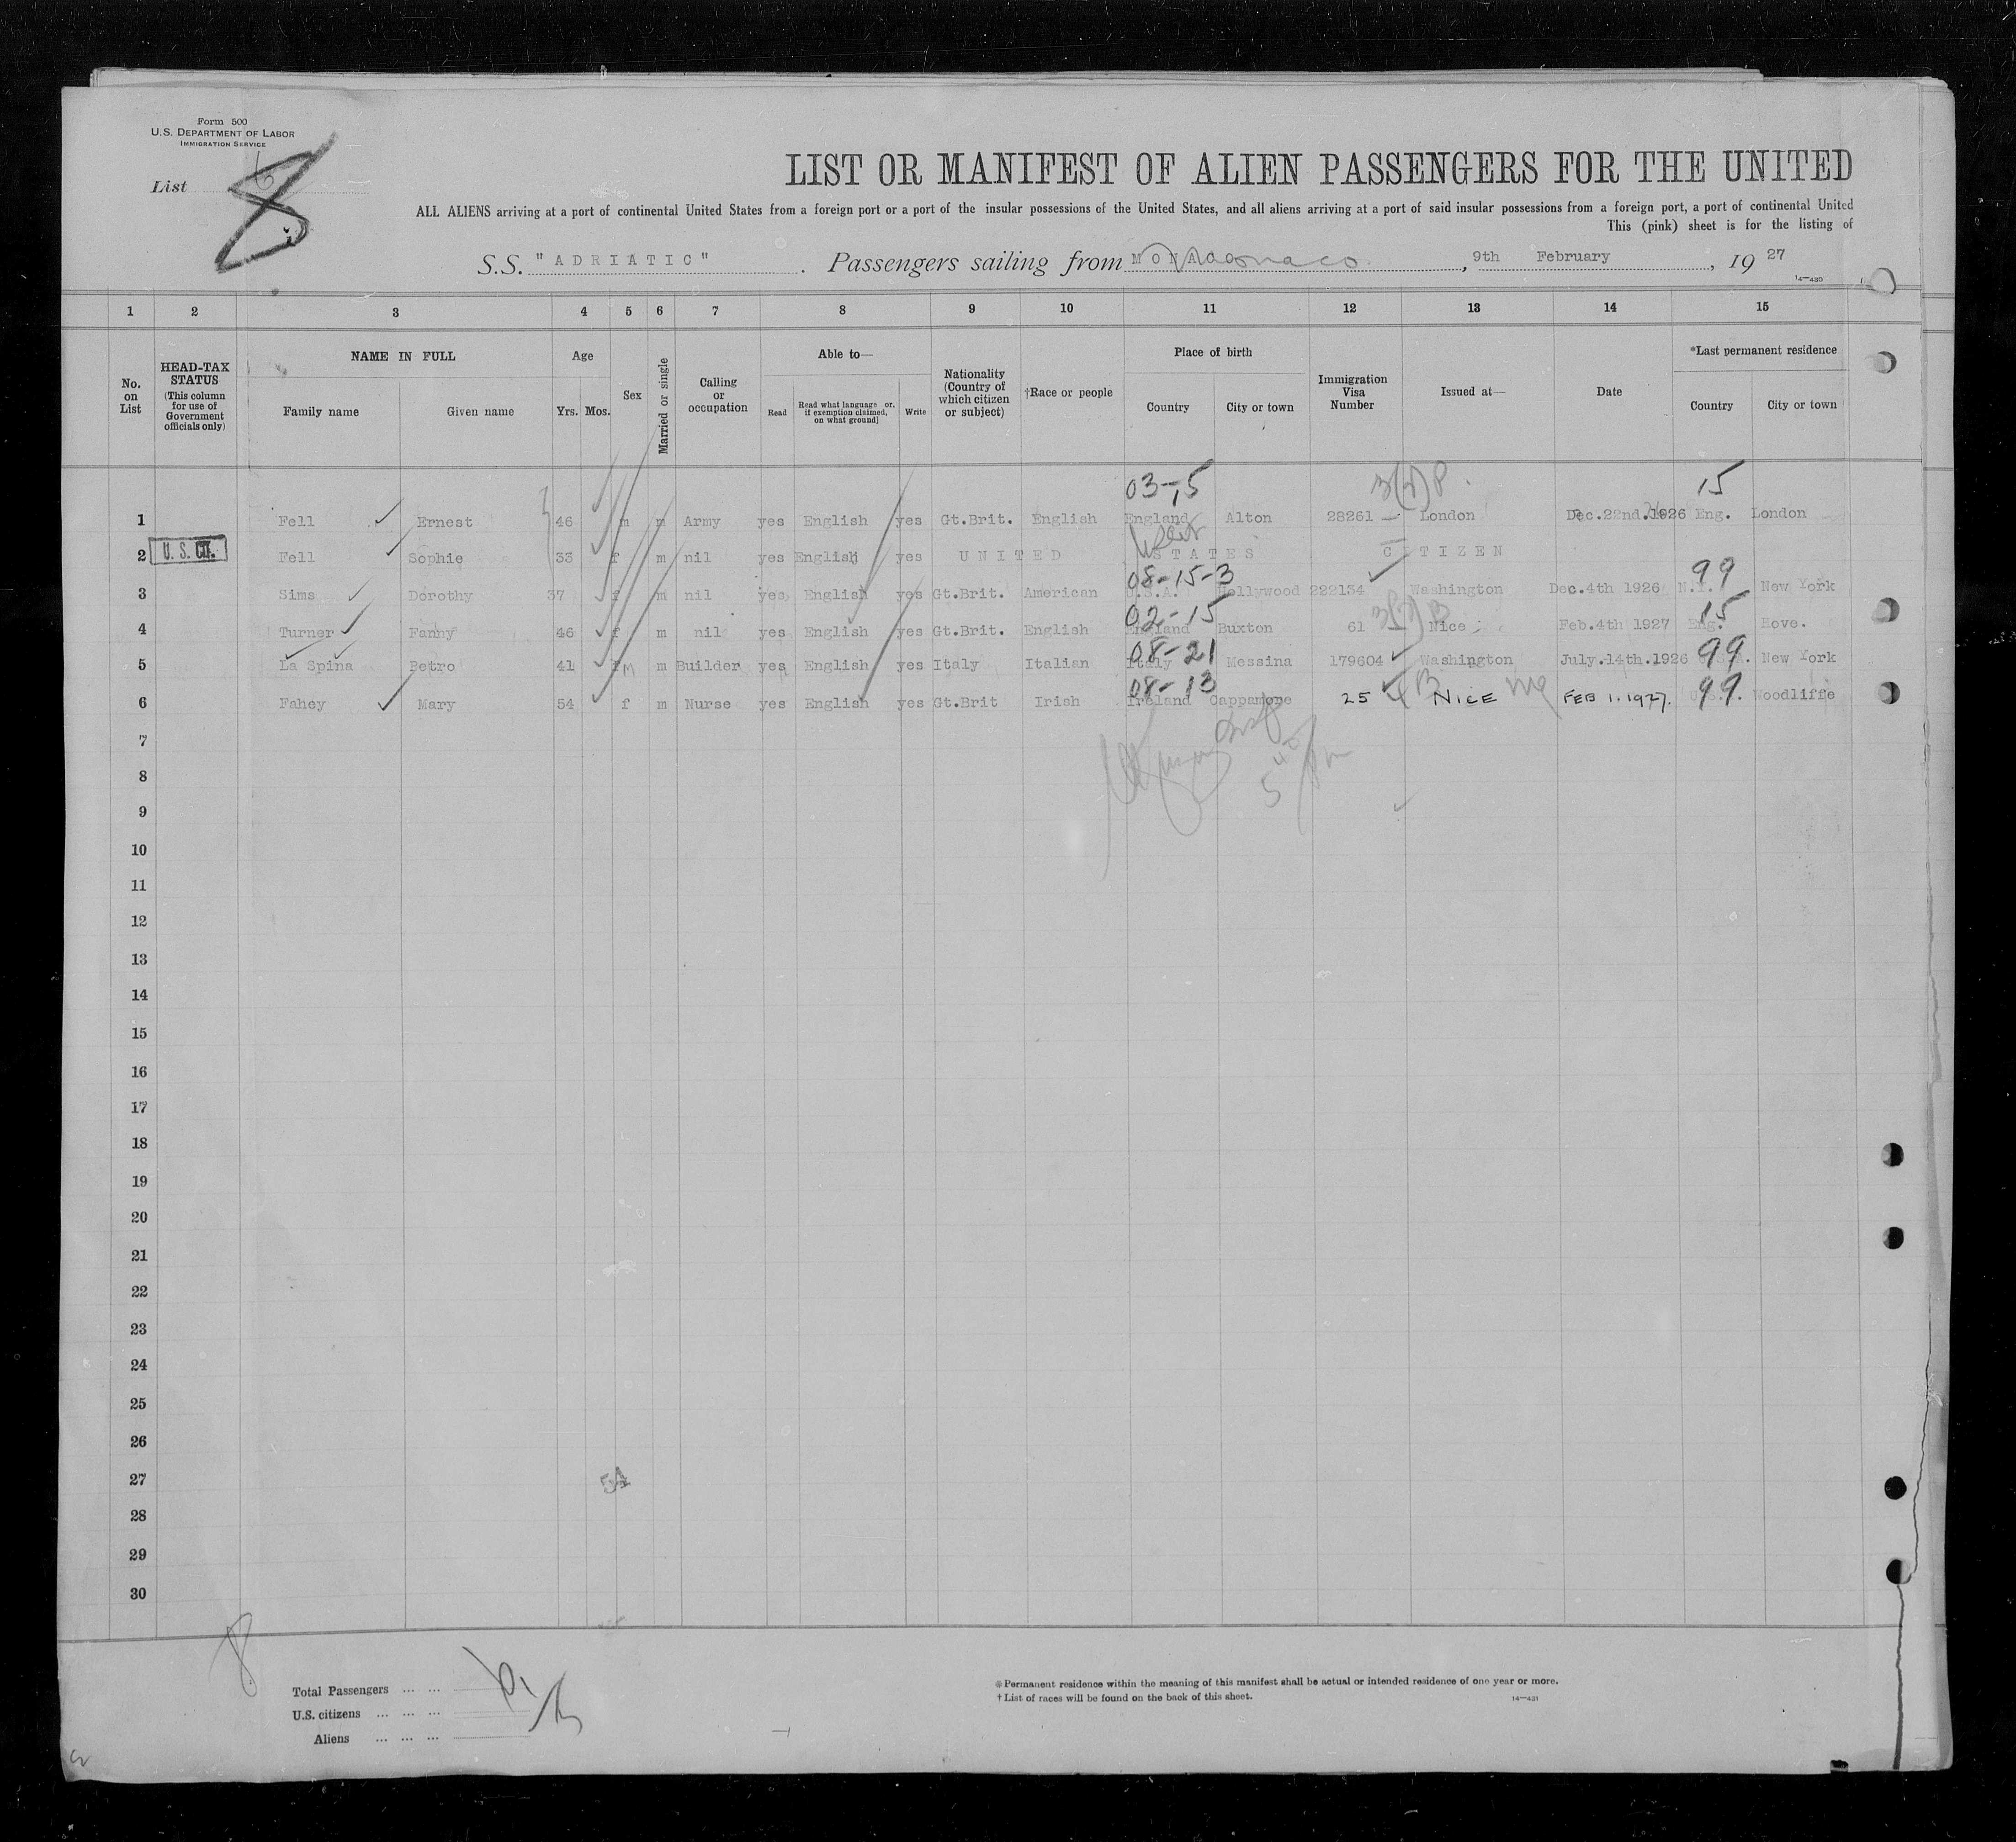 Form 500
U.S. DEPARTMENT OF LABOR
IMMIGRATION SERVICE
List 8
LIST OR MANIFEST OF ALIEN PASSENGERS FOR THE UNITED
ALL ALIENS arriving at a port of continental United States from a foreign port or a port of the insular possessions of the United States, and all aliens arriving at a port of said insular possessions from a foreign port, a port of continental United
This (pink) sheet is for the listing of
S.S. "ADRIATIC" . Passengers sailing from Monaco, 9th February, 1927
14—430
1 2 3 4 5 6 7 8 9 10 11 12 13 14 15
No. on List
HEAD-TAX STATUS (This column for use of Government officials only)
NAME IN FULL
Family name Given name
Age
Yrs. Mos.
Sex
Married or single
Calling or occupation
Able to—
Read
Read what language or, if exemption claimed, on what ground]
Write
Nationality (Country of which citizen or subject)
†Race or people
Place of birth
Country City or town
Immigration Visa Number
Issued at—
Date
*Last permanent residence
Country City or town
03-15 3(2)B 15
1 Fell Ernest 46 m m Army yes English yes Gt.Brit. English England Alton 28261 London Dec.22nd.1926 Eng. London
2 U.S. CIT. Fell Sophie 33 f m nil yes English yes UNITED STATES CITIZEN
08-15-3 99
3 Sims Dorothy 37 f m nil yes English yes Gt.Brit. American U.S.A. Hollywood 222154 Washington Dec.4th 1926 N.Y. New York
02-15 3(2)B 15
4 Turner Fanny 46 f m nil yes English yes Gt.Brit. English England Buxton 61 Nice Feb.4th 1927 Eng. Hove.
08-21 99
5 La Spina Petro 41 M m Builder yes English yes Italy Italian Italy Messina 179604 Washington July.14th.1926 New York
08-13 4B 99
6 Fahey Mary 54 f m Nurse yes English yes Gt.Brit Irish Ireland Cappamore 25 NICE FEB 1.1927. U.S. Woodliffe
7
8
9
10
11
12
13
14
15
16
17
18
19
20
21
22
23
24
25
26
27 54
28
29
30
8
Total Passengers
U.S. citizens
Aliens
* Permanent residence within the meaning of this manifest shall be actual or intended residence of one year or more.
† List of races will be found on the back of this sheet.
14—431